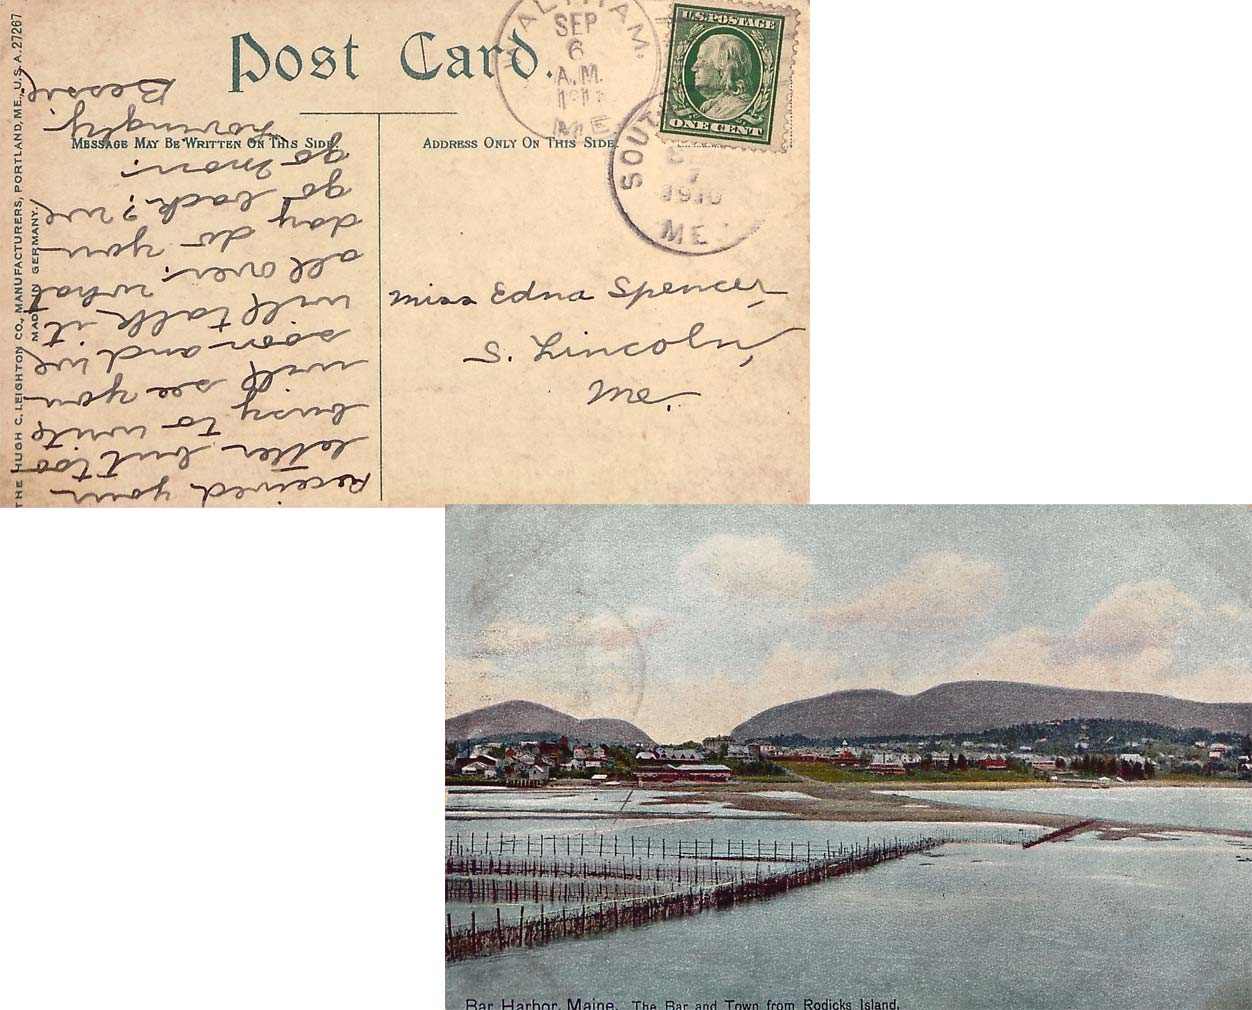 THE HUGH C. LEIGHTON CO., MANUFACTURERS, PORTLAND, ME., U.S.A. 27267
MADE IN GERMANY.
Post Card.
WALTHAM.
SEP
6
A.M.
ME
U.S. POSTAGE
ONE CENT
SOUT
7
1910
ME
MESSAGE MAY BE WRITTEN ON THIS SIDE.
ADDRESS ONLY ON THIS SIDE
Received your
letter but too
busy to write
will see you
soon and we
will talk it
all over. what
day do you
go back? we
go mon.
Lovingly
Bessie
Miss Edna Spencer
S. Lincoln,
Me.
Bar Harbor, Maine. The Bar and Town from Rodicks Island.